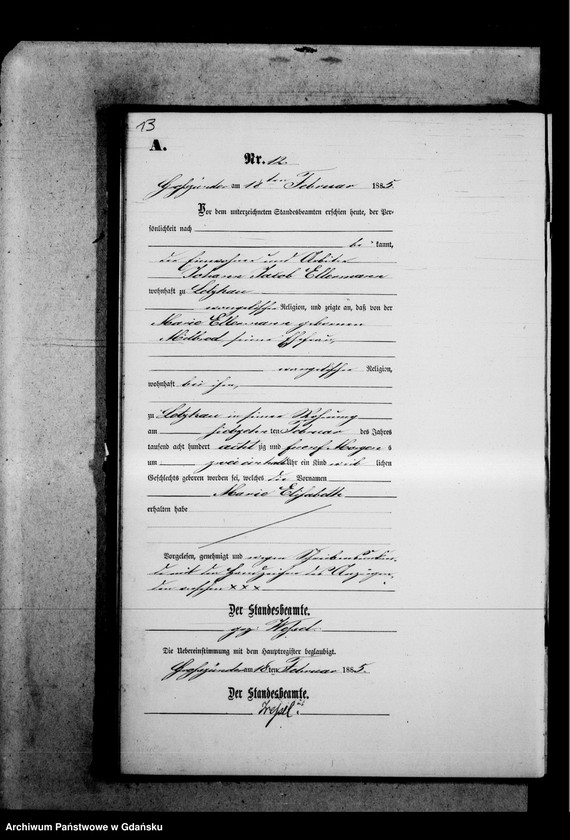 13
A.
Nr. 12.
am 18ten Februar 1885.
Vor dem unterzeichneten Standesbeamten erschien heute, der Per-
sönlichkeit nach
be kannt,
der Einwohner und Arbeiter
Johann Jacob Ellermann
wohnhaft zu Letzkau
evangelischer Religion, und zeigte an, daß von der
Marie Ellermann geborenen
seiner Ehefrau,
evangelischer Religion,
wohnhaft bei ihm,
zu Letzkau in seiner Wohnung
am siebzehn ten Februar des Jahres
tausend acht hundert acht zig und fuenf Morgens
um zwei einhalb Uhr ein Kind weib lichen
Geschlechts geboren worden sei, welches die Vornamen
Marie Elisabeth
erhalten habe
Vorgelesen, genehmigt und wegen
mit dem Handzeichen des Anzeigen-
den versehen xxx
Der Standesbeamte.
gez. Wessel.
Die Uebereinstimmung mit dem Hauptregister beglaubigt.
am 18ten Februar 1885.
Der Standesbeamte.
Wessel.
Archiwum Państwowe w Gdańsku